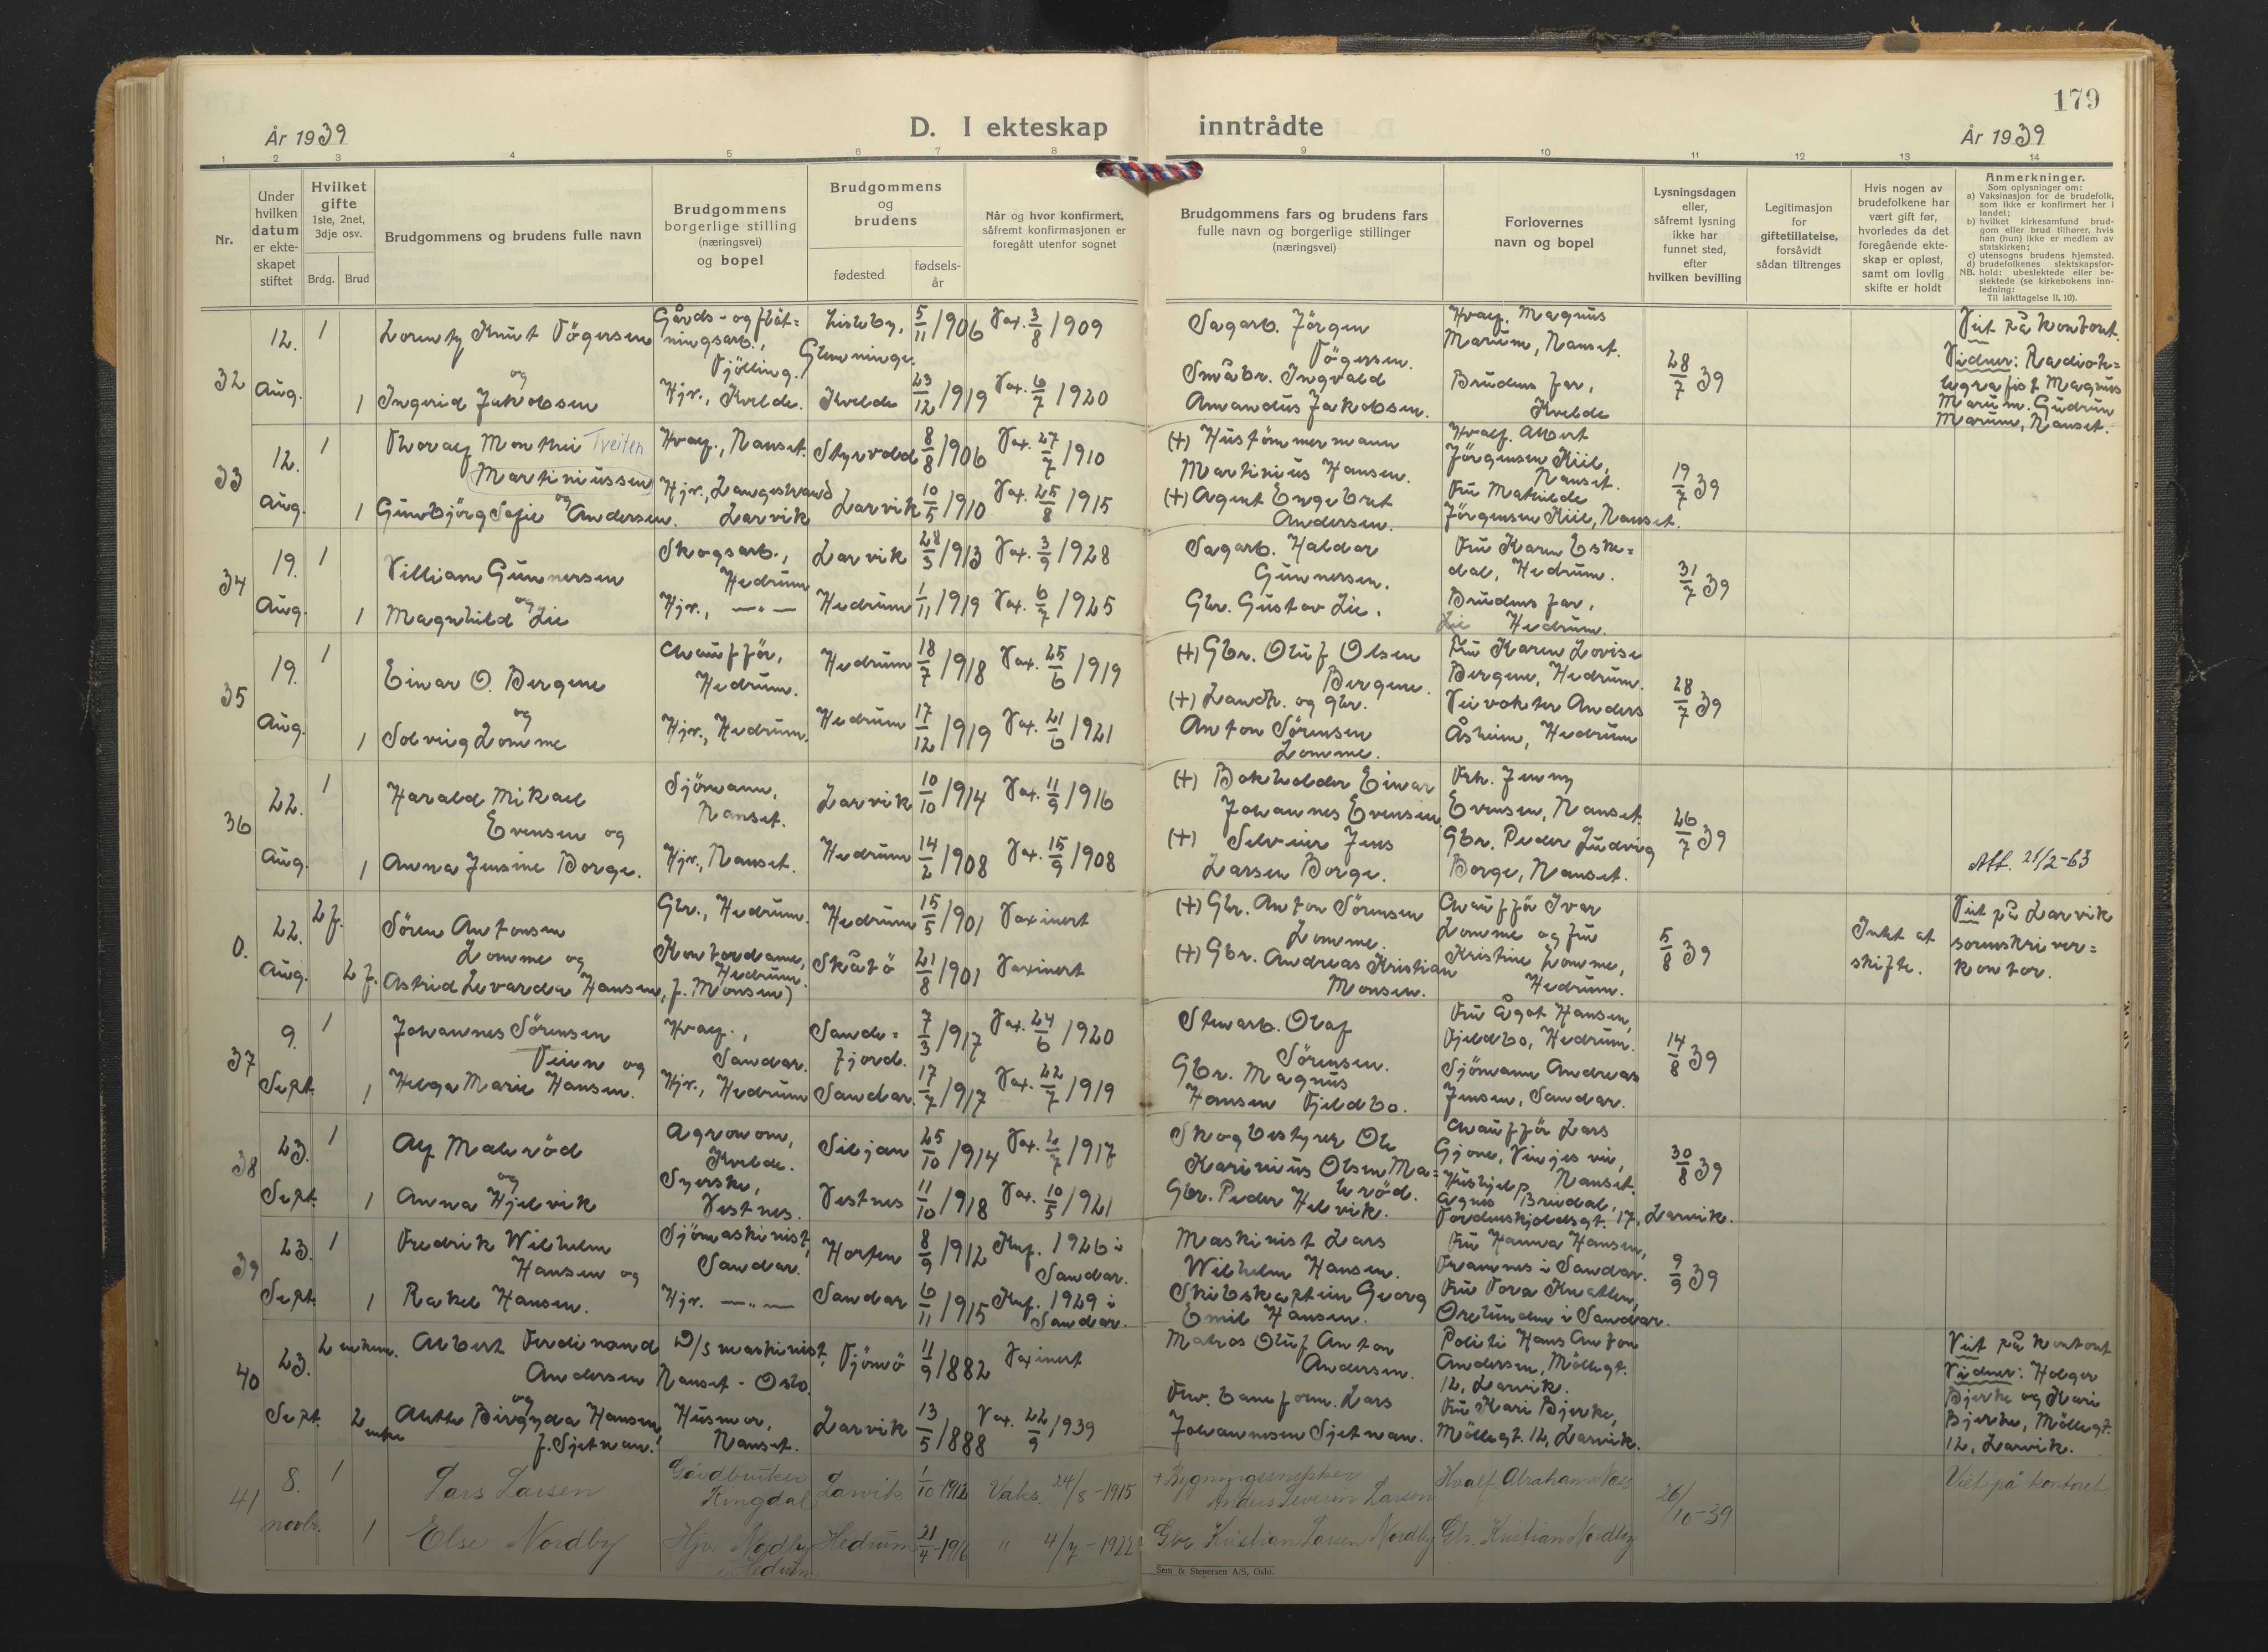 179
År 1939
D. I ekteskap inntrådte
År 1939
1 2 3 4 5 6 7 8 9 10 11 12 13 14
Nr.
Under
hvilken
datum
er ekte-
skapet
stiftet
Hvilket
gifte
1ste, 2net,
3dje osv.
Brdg. Brud
Brudgommens og brudens fulle navn
Brudgommens
borgerlige stilling
(næringsvei)
og bopel
Brudgommens
og
brudens
fødested
fødsels-
år
Når og hvor konfirmert,
såfremt konfirmasjonen er
foregått utenfor sognet
Brudgommens fars og brudens fars
fulle navn og borgerlige stillinger
(næringsvei)
Forlovernes
navn og bopel
Lysningsdagen
eller,
såfremt lysning
ikke har
funnet sted,
efter
hvilken bevilling
Legitimasjon
for
giftetillatelse,
forsåvidt
sådan tiltrenges
Hvis nogen av
brudefolkene har
vært gift før,
hvorledes da det
foregående ekte-
skap er opløst,
samt om lovlig
skifte er holdt
Anmerkninger.
Som oplysninger om:
a) Vaksinasjon for de brudefolk,
som ikke er konfirmert her i
landet;
b) hvilket kirkesamfund brud-
gom eller brud tilhører, hvis
han (hun) ikke er medlem av
statskirken;
c) utensogns brudens hjemsted.
d) brudefolkenes slektskapsfor-
NB. hold: ubeslektede eller be-
slektede (se kirkebokens inn-
ledning:
Til iakttagelse II, 10).
32
12.
Aug.
1
Lorentz Knut Tögersen
og
1 Ingerid Jakobsen
Gårds- og fløt=
ningsarb.,
Tjölling.
Hjv., Kvelde.
Lisleby,
Glemminge.
Kvelde
5/11 1906
23/12 1919
Vax. 3/8 1909
Vax. 6/7 1920
Sagarb. Jörgen
Tögersen.
Småbr. Ingvald
Amandus Jakobsen.
Hvalf. Magnus
Marum, Nanset.
Brudens far,
Kvelde
28/7 39
Viet på kontoret.
Vidner: Radiote=
legrafist Magnus
Marum. Gudrun
Marum, Nanset.
33
12.
Aug.
1
Thoralf Monthei Tveiten
Martiniussen
og
1 Gunbjörg Sofie Andersen.
Hvalf., Nanset.
Hjv., Langestrand
Larvik
Styrvold
Larvik
8/8 1906
10/5 1910
Vax. 27/7 1910
Vax. 25/8 1915
(+) Hustömmermann
Martinius Hansen.
(+) Agent Engebret
Andersen.
Hvalf. Albert
Jörgensen Kiil,
Nanset.
Fru Mathilde
Jörgensen Kiil, Nanset.
19/7 39
34
19.
Aug.
1
Villiam Gunnersen
og
1 Magnhild Lie
Skogsarb.,
Hedrum
Hjv., —"—
Larvik
Hedrum
28/3 1913
1/11 1919
Vax. 3/9 1928
Vax. 6/7 1925
Sagarb. Haldor
Gunnersen.
Gbr. Gustav Lie.
Fru Karen Eske=
dal, Hedrum.
Brudens far,
Lie Hedrum.
31/7 39
35
19.
Aug.
1
Einar O. Bergene
og
1 Solveig Lomme
Chaufför,
Hedrum.
Hjv., Hedrum.
Hedrum
Hedrum
18/7 1918
17/12 1919
Vax. 25/6 1919
Vax. 21/6 1921
(+) Gbr. Oluf Olsen
Bergene.
(+) Landh. og gbr.
Anton Sörensen
Lomme.
Fru Karen Lovise
Bergene, Hedrum.
Veivokter Anders
Åsheim, Hedrum
28/7 39
36
22.
Aug.
1
Harald Mikael
Evensen og
1 Anna Jensine Borge.
Sjömann,
Nanset.
Hjv., Nanset.
Larvik
Hedrum
10/10 1914
14/2 1908
Vax. 11/9 1916
Vax. 15/9 1908
(+) Bokholder Einar
Johannes Evensen
(+) Selveier Jens
Larsen Borge.
Frk. Jenny
Evensen, Nanset.
Gbr. Peder Ludvig
Borge, Nanset.
26/7 39
Att. 21/2-63
0.
22.
Aug.
2 f.
Sören Antonsen
Lomme og
2 f. Astrid Levarda Hansen, f. Monsen)
Gbr., Hedrum.
Kontordame,
Hedrum.
Hedrum
Skåtö
15/5 1901
21/8 1901
Vaxinert
Vaxinert
(+) Gbr. Anton Sörensen
Lomme.
(+) Gbr. Andreas Kristian
Monsen.
Chaufför Ivar
Lomme og fru
Kristine Lomme,
Hedrum.
5/8 39
Intet at
skifte.
Viet på Larvik
sorenskriver=
kontor.
37
9.
Sept.
1
Johannes Sörensen
Veien og
1 Helga Marie Hansen.
Hvalf.,
Sandar.
Hjv., Hedrum
Sande=
fjord.
Sandar.
7/3 1917
17/7 1917
Vax. 24/6 1920
Vax. 22/7 1919
Stenarb. Olaf
Sörensen.
Gbr. Magnus
Hansen Fjeldbo.
Fru Ågot Hansen,
Fjeldbo, Hedrum.
Sjömann Andreas
Jensen, Sandar.
14/8 39
38
23.
Sept.
1
Alf Maleröd
og
1 Anna Hjelvik
Agronom,
Kvelde.
Syerske,
Vestnes.
Siljan
Vestnes
25/10 1914
11/10 1918
Vax. 2/7 1917
Vax. 10/5 1921
Skogbestyrer Ole
Karinius Olsen Ma=
leröd.
Gbr. Peder Helvik.
Chaufför Lars
Gjone, Vinjes vei,
Nanset.
Hushjelp
Agnes Brudal,
Tordenskjoldsgt. 17, Larvik.
30/8 39
39
23.
Sept.
1
Fredrik Wilhelm
Hansen og
1 Rakel Hansen.
Sjömaskinist,
Sandar.
Hjv. —"—
Horten
Sandar
8/9 1912
6/11 1915
Knf. 1926 i
Sandar.
Knf. 1929 i
Sandar.
Maskinist Lars
Wilhelm Hansen.
Skibskaptein Georg
Emil Hansen.
Fru Hanna Hansen,
Framnes i Sandar.
Fru Tora Knatten,
Orelunden i Sandar.
9/9 39
40
23.
Sept.
2 enkem.
Albert Ferdinand
Andersen
og
2 enke
Birgyda Hansen,
f. Sjetnan.
D/s maskinist,
Nanset - Oslo.
Husmor,
Nanset.
Tjömö
Larvik
11/9 1882
13/5 1888
Vaxinert
Vax. 22/9 1939
Matros Oluf Anton
Andersen.
Frv. baneform. Lars
Johannesen Sjetnan.
Politi Hans Anton
Andersen, Möllegt.
12, Larvik.
Fru Kari Bjerke,
Möllegt. 12, Larvik.
Viet på kontoret
Vidner: Holger
Bjerke og Kari
Bjerke, Möllegt.
12, Larvik.
41
8.
novbr.
1
Lars Larsen
1 Else Nordby
Gårdbruker
Ringdal
Hjv. Nordby
i Hedrum
Larvik
Hedrum
1/10-1912
21/4-1916
Vaks. 24/8-1915
" 4/7-1922
+ Bygningssnekker
Anders Severin Larsen
Gbr Kristian Larsen Nordby
Hvalf. Abraham Næss
Gbr. Kristian Nordby
26/10-39
Viet på kontoret
Sem & Stenersen A/S, Oslo.